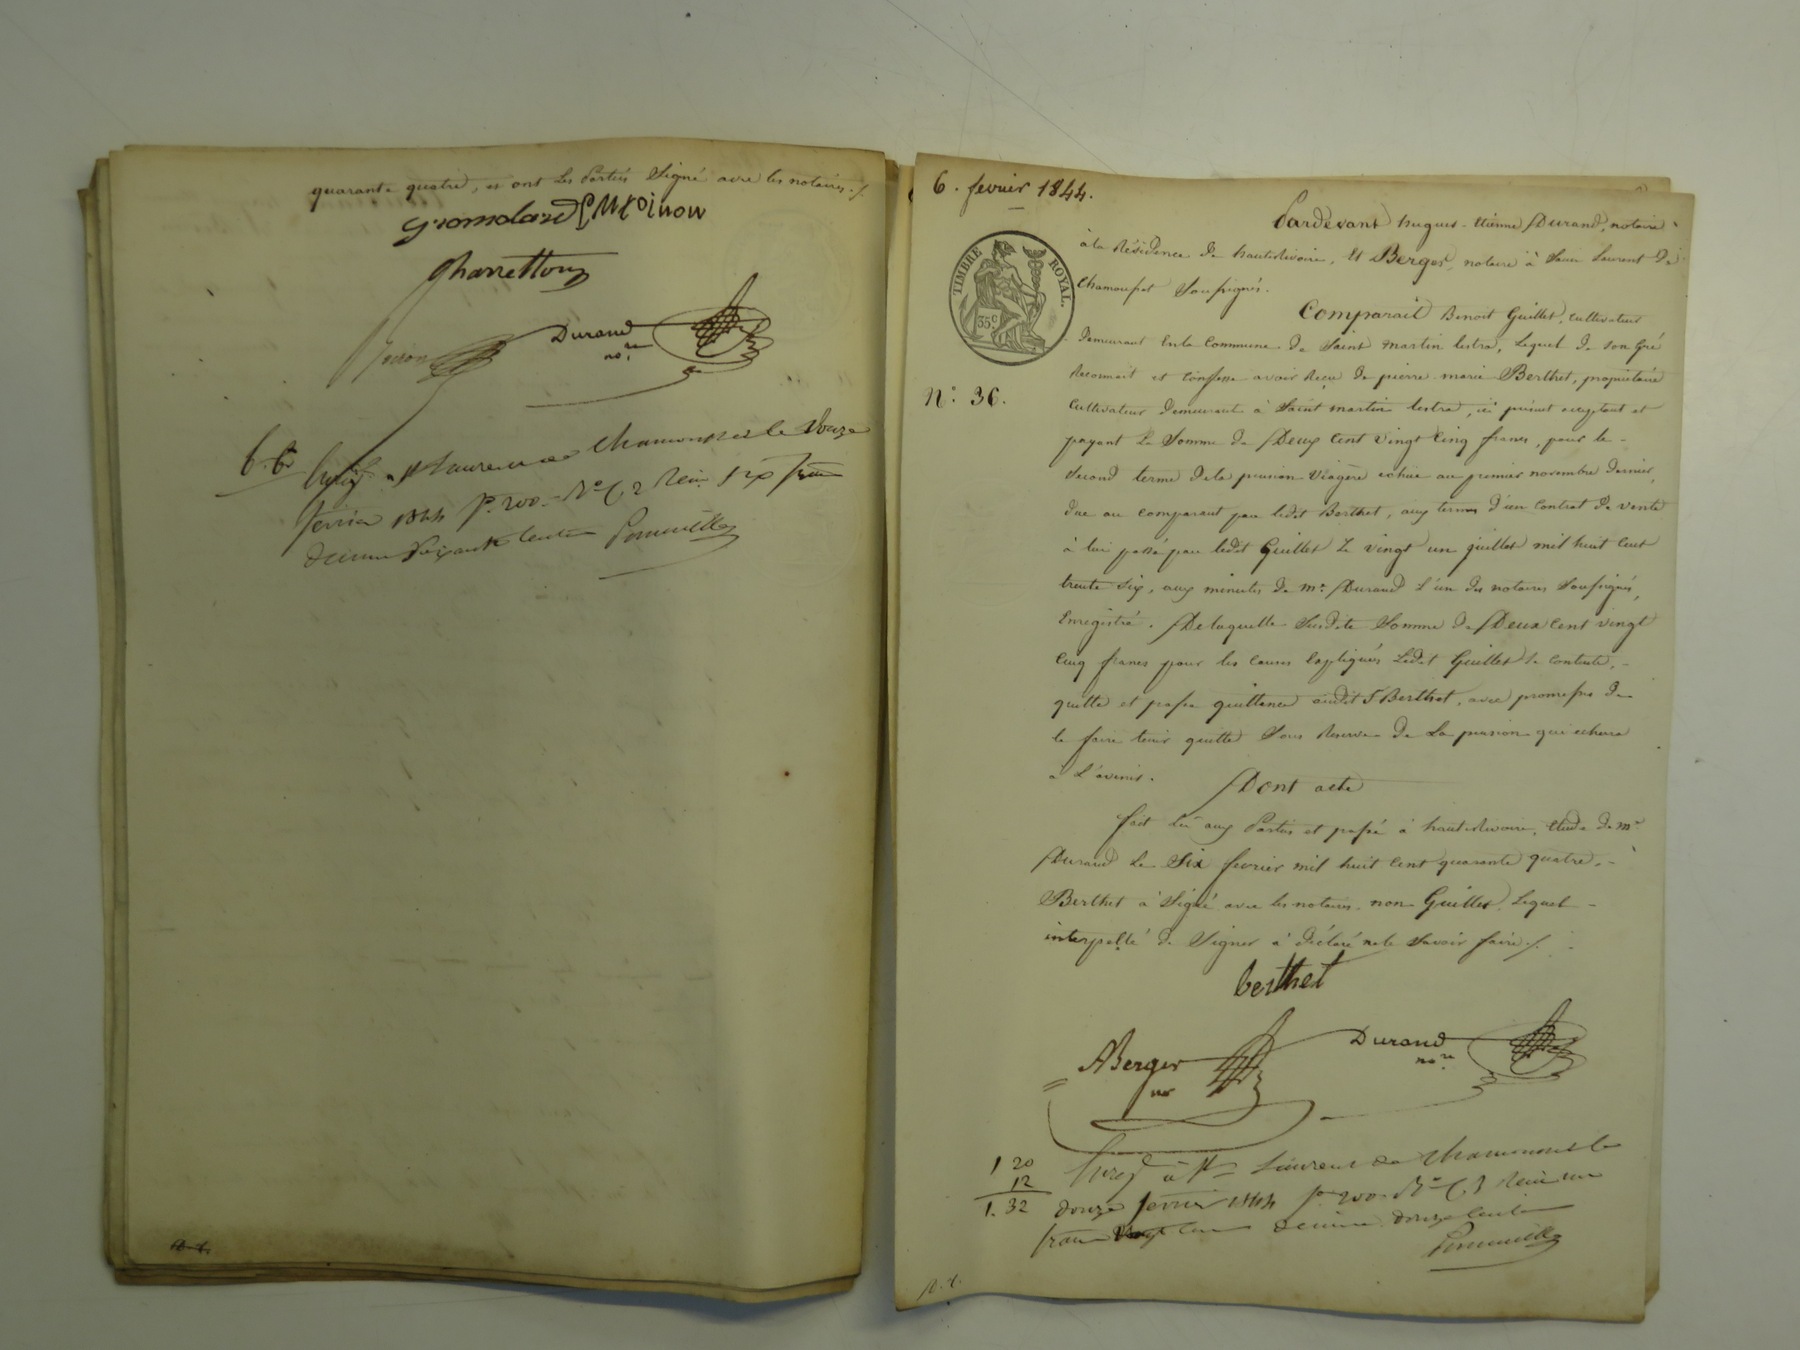 quarante quatre, et ont les Parties Signé avec les notaires./.
Charretton
Durand
nore
6.60
Enregé à St Laurent de Chamousset le Douze
février 1844 fo 200. Ro C. 2 Reçu six francs
décime soixante centimes
6. fevrier 1844.
Pardevant hugues-Etienne Durand, notaire
à la Résidence de hauterivoire, Et Berger, notaire à Saint Laurent de
Chamousset Soussignés.
TIMBRE ROYAL.
35c
Comparait Benoit Guillet, cultivateur
Demeurant En la Commune de Saint martin lestra, Lequel de son Gré
Reconnait et Confesse avoir Reçu de pierre marie Berthet, propriétaire
N° 36.
Cultivateur Demeurant à Saint martin lestra, ici présent acceptant et
payant La Somme de Deux Cent vingt Cinq francs, pour le
Second terme de la pension viagère echue au premier novembre dernier,
due au comparant par ledit Berthet, aux termes d'un Contrat de vente
à lui passé par ledit Guillet Le vingt un juillet mil huit Cent
trente Six, aux minutes de me Durand L'un des notaires Soussignés,
Enregistré. De laquelle Susdite Somme de Deux Cent vingt
Cinq francs pour les Causes Expliquées Ledit Guillet Se contente,
quitte et passe quittance audit S Berthet, avec promesse de
le faire tenir quitte Sous Reserve de La pension qui echerra
à L'avenir.
Dont acte
fait Lu aux Parties et passé à hauterivoire, Etude de me
Durand Le Six fevrier mil huit Cent quarante quatre.
Berthet à Signé avec les notaires non Guillet Lequel
interpellé de Signer à déclaré ne le Savoir faire./.
berthet
ABerger
no
Durand
nore
1 20
12
1. 32
Enregé à St Laurent de Chamousset le
douze février 1844 fo 200. Ro C. 3 Reçu un
franc vingt cen décime douze centimes